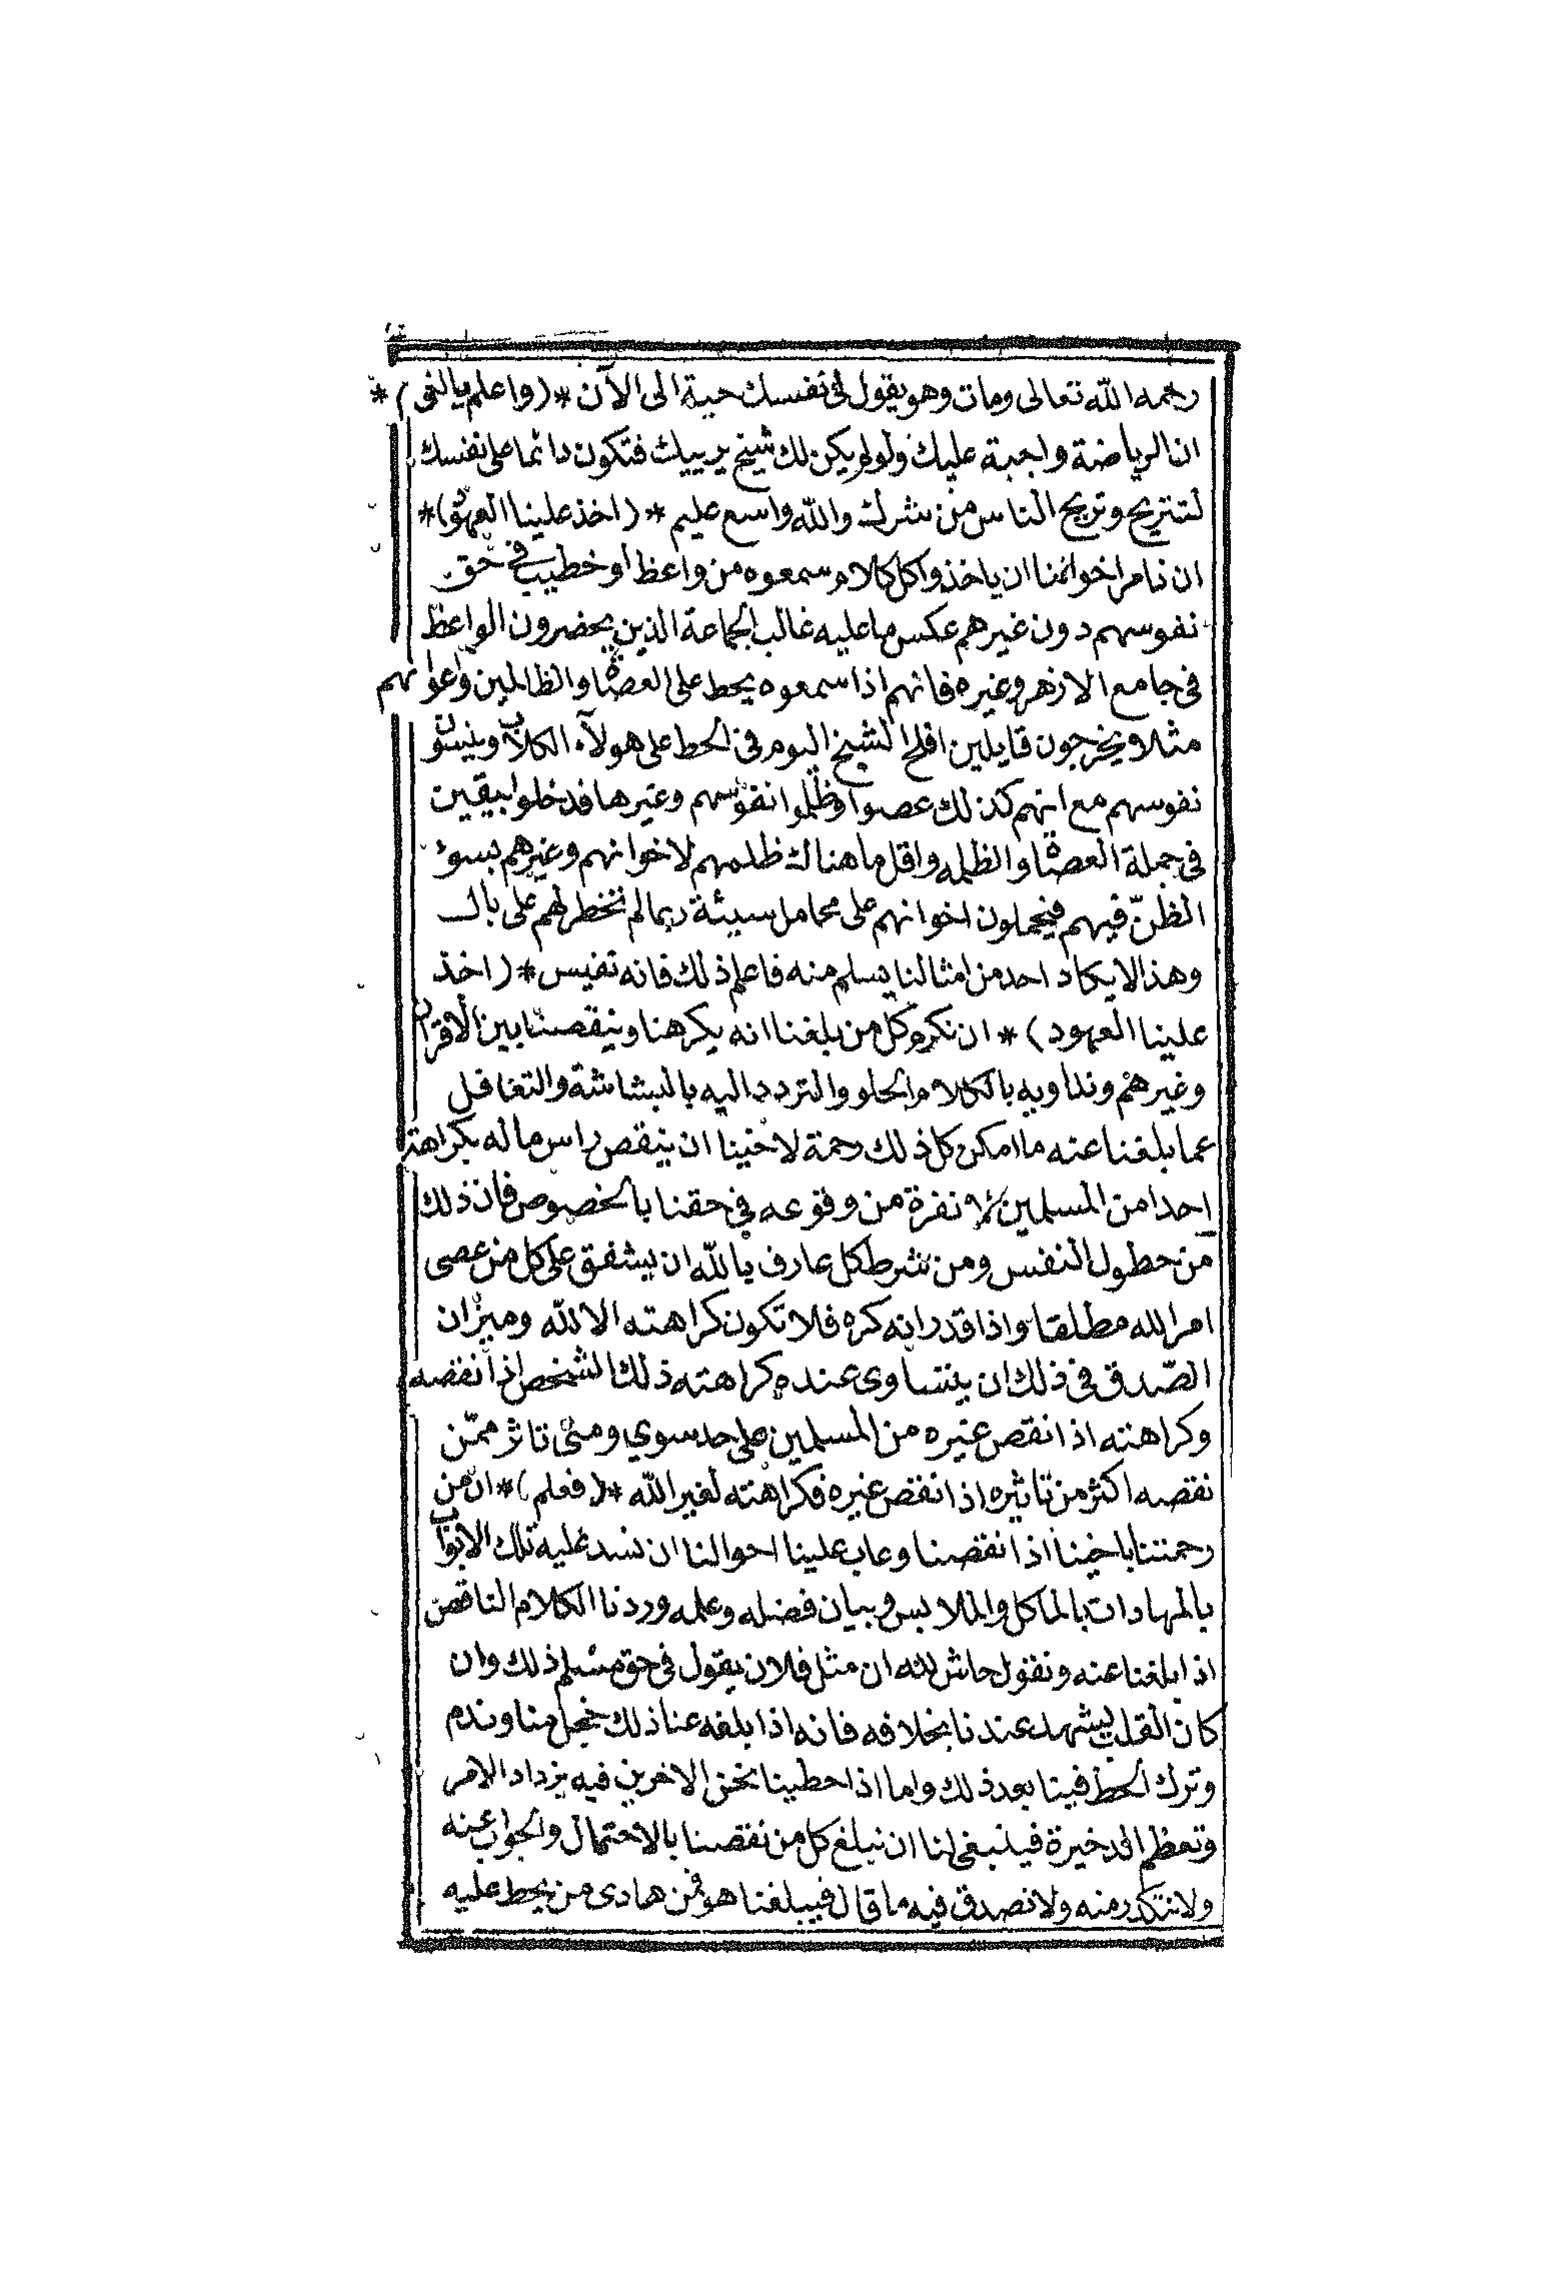 رحمه الله تعالى ومات وهو يقول لى نفسك حية الى الآن * (واعلم يااخى) *
ان الرياضة واجبة عليك ولولم يكن لك شيخ يربيك فتكون دائما على نفسك
لتستريح وتريح الناس من شرك والله واسع عليم * (اخذ علينا العهود) *
ان نامر اخواننا ان ياخذوا كل كلام سمعوه من واعظ او خطيب فى حق
نفوسهم دون غيرهم عكس ما عليه غالب الجماعة الذين يحضرون الواعظ
فى جامع الازهر وغيره فانهم اذا سمعوه يحط على العصاة والظالمين واعوانهم
مثلا ويخرجون قايلين افلح الشيخ اليوم فى الحط على هولآء الكلاب وينسون
نفوسهم مع انهم كذلك عصوا وظلموا نفوسهم وغيرها فدخلوا بيقين
فى جملة العصاة والظلمه واقل ما هناك ظلمهم لاخوانهم وغيرهم بسوء
الظنّ فيهم فيحملون اخوانهم على محامل سيئة ربما لم تخطر لهم على بال
وهذا لا يكاد احد من امثالنا يسلم منه فاعلم ذلك فانه نفيس * (اخذ
علينا العهود) * ان نكرم كل من بلغنا انه يكرهنا وينقصنا بين الاقران
وغيرهم ونداويه بالكلام الحلو والتردد اليه بالبشاشة والتغافل
عما بلغنا عنه ما امكن كل ذلك رحمة لاخينا ان ينقص راس ماله بكراهة
احدا من المسلمين لا نفرة من وقوعه فى حقنا بالخصوص فان ذلك
من حظوظ النفس ومن شرط كل عارف بالله ان يشفق على كل من عصى
امر الله مطلقا واذا قدر انه كره فلا تكون كراهته الا لله وميزان
الصّدق فى ذلك ان يتساوى عنده كراهته ذلك الشخص اذا نقصه
وكراهته اذا نقص غيره من المسلمين على حد سوي ومتى تاثر ممّن
نقصه اكثر من تاثيره اذا نقص غيره فكراهته لغير الله * (فعلم) * ان من
رحمتنا باخينا اذا نقصنا وعاب علينا احوالنا ان نسد عليه تلك الابواب
بالمهادات بالماكل والملابس وبيان فضله وعلمه وردنا الكلام الناقص
اذا بلغنا عنه ونقول حاش لله ان مثل فلان يقول فى حق مسلم ذلك وان
كان القلب يشهد عندنا بخلافه فانه اذا بلغه عنا ذلك خجل منا وندم
وترك الحط فينا بعد ذلك واما اذا حطينا نحن الاخرين فيه يزداد الامر
وتعظم الدخيرة فينبغى لنا ان نبلغ كل من نقصنا بالاحتمال والجواب عنه
ولا نتكدر منه ولا نصدق فيه ما قال فيبلغنا هو فمن هادى من يحط عليه